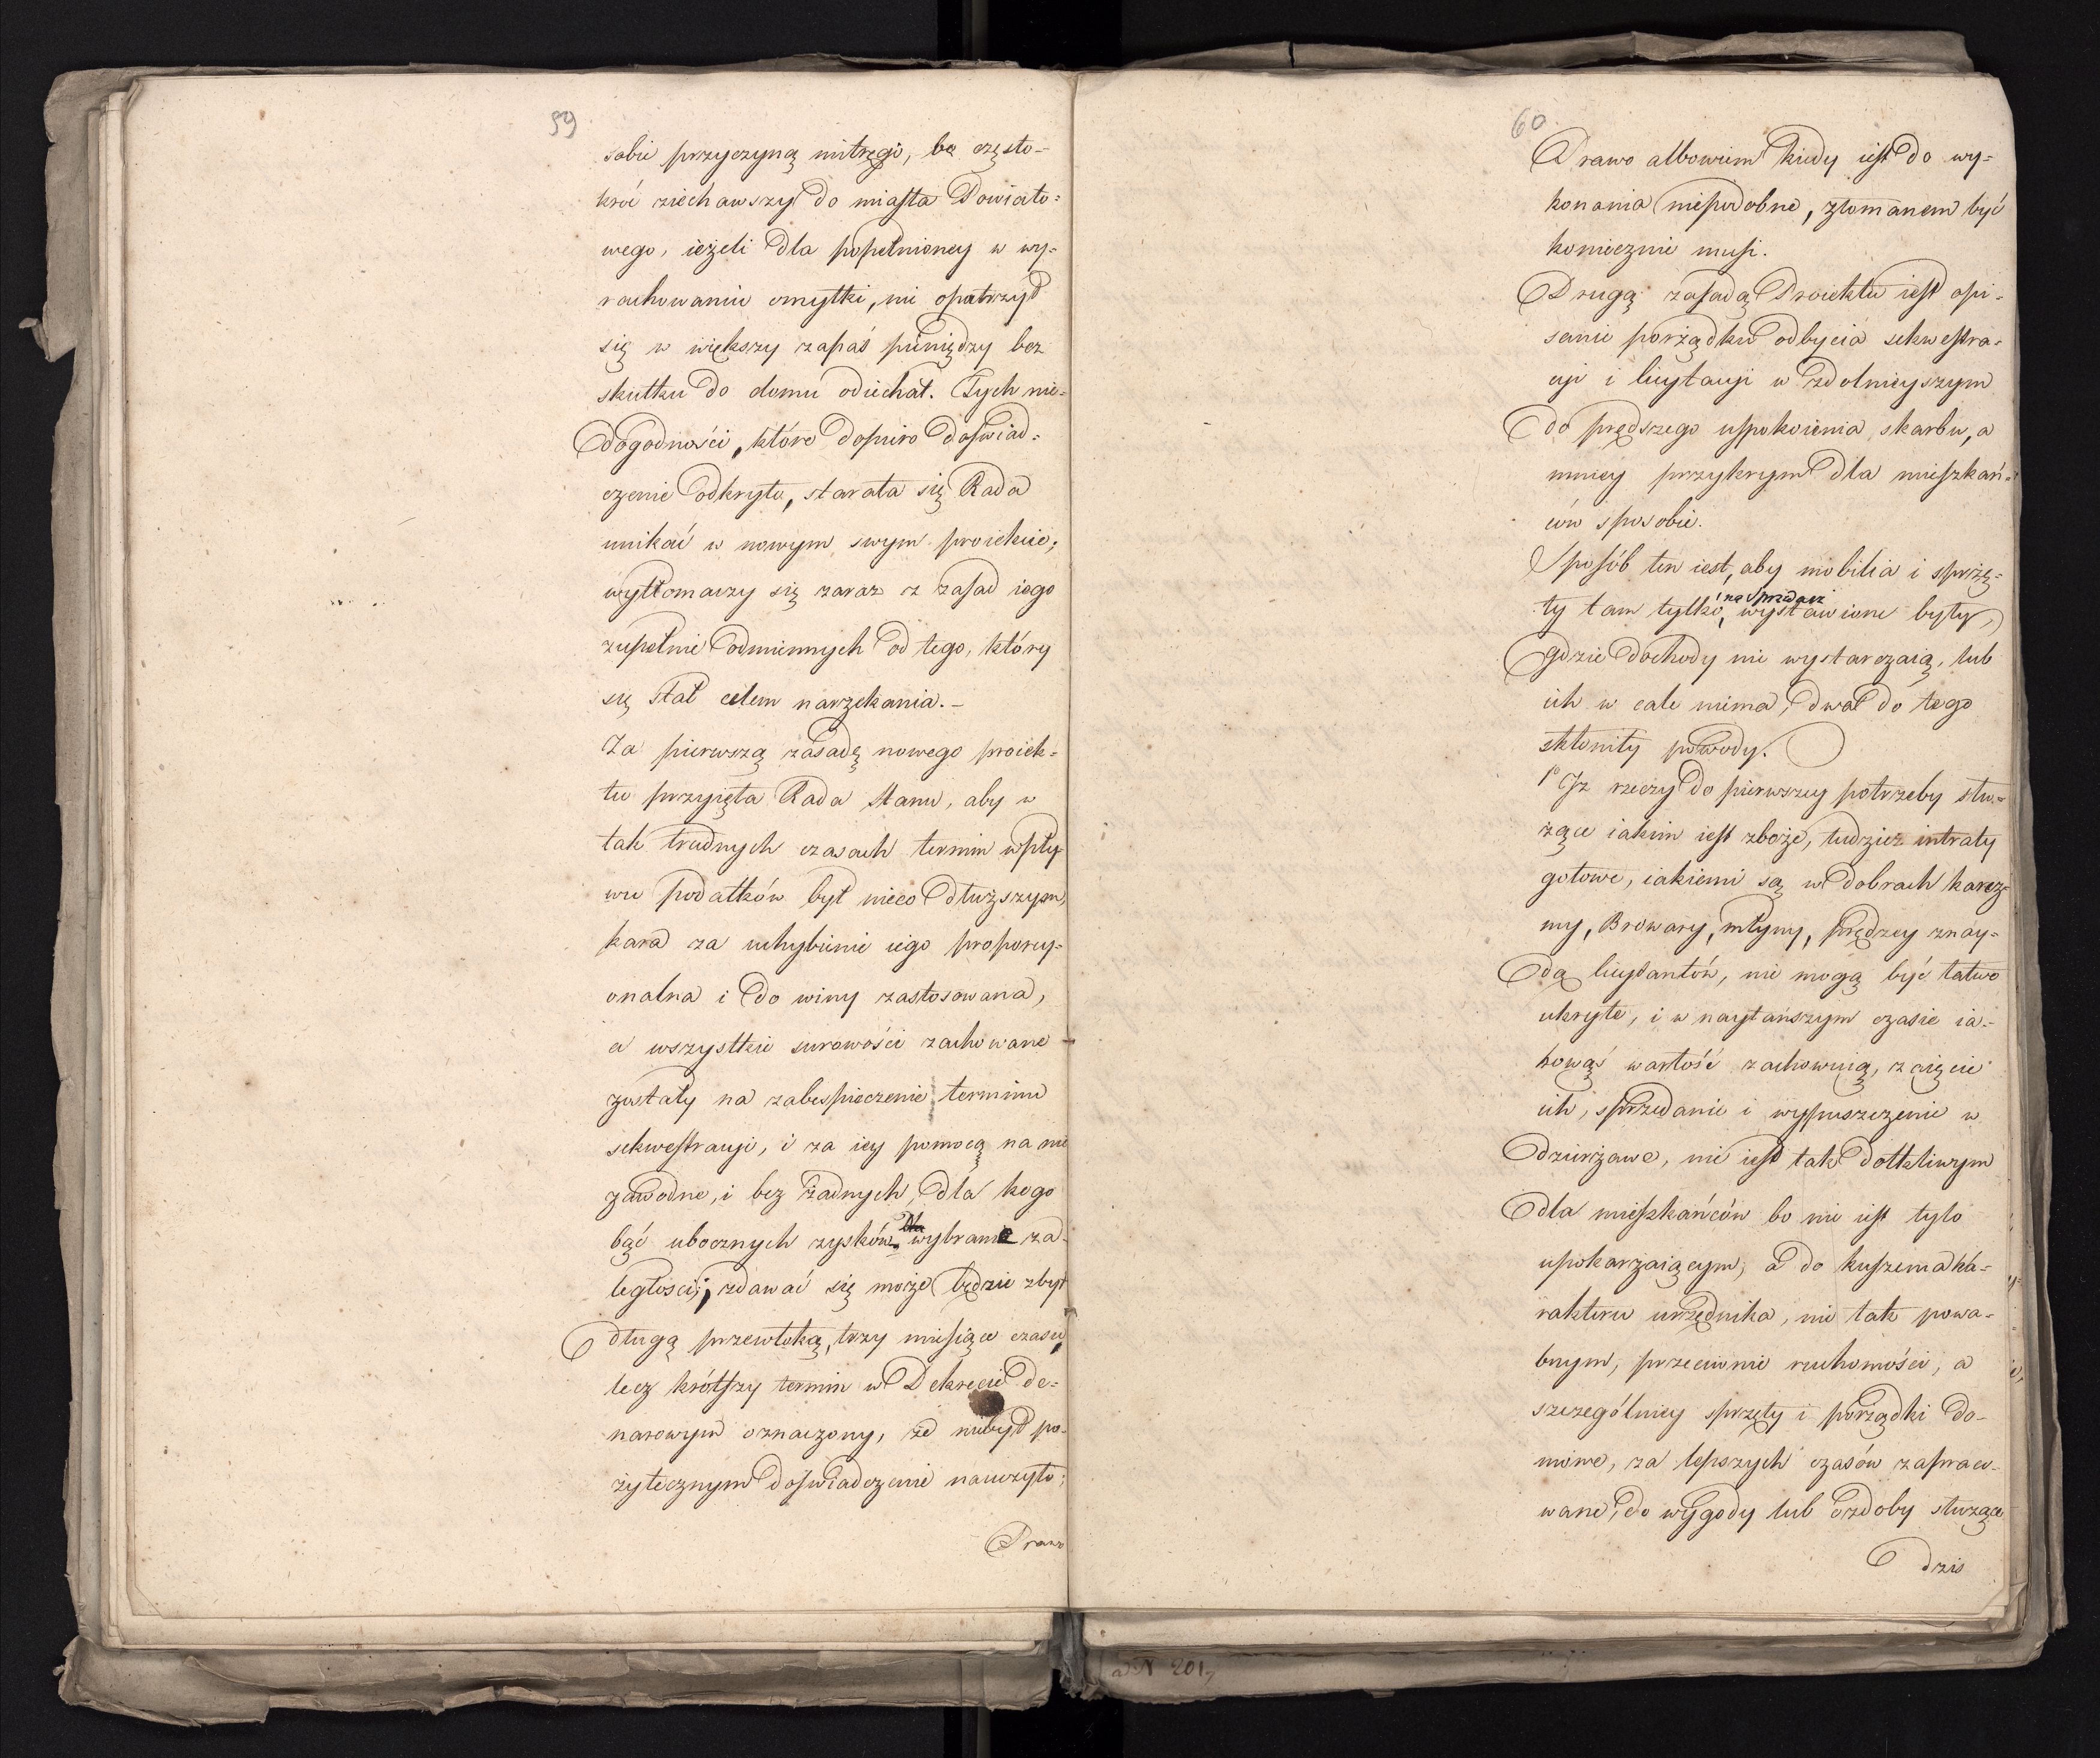 59
sobie przyczyną mitręgi, bo często-
kroć ziechawszy do miasta Powiato-
wego, ieżeli dla popełnioney w wy-
rachowaniu omyłki, nie opatrzył
się w większy zapas pieniędzy bez
skutku do domu odiechał. Tych nie-
dogodności, które dopiero doświad-
czenie odkryło, starała się Rada
unikać w nowym swym proiekcie;
wytłomaczy się zaraz z zasad iego
zupełnie odmiennych od tego, który
się stał celem narzekania.-
Za pierwszą zasadę nowego proiek-
tu przyięła Rada Stanu, aby w
tak trudnych czasach termin wpły-
wu podatków był nieco dłuższym,
kara za uchybienie iego proporcy-
onalna i do winy zastosowana,
a wszystkie surowości zachowane
zostały na zabespieczenie terminu
sekwestracyi, i za iey pomocą na nie
zawodne, i bez żadnych, dla kogo
bąć ubocznych zysków wybranie za-
ległości; zdawać się może będzie zbyt
długą przewłoką, trzy miesiące czasu,
lecz krótszy termin w Dekrecie de-
narowym oznaczony, że niebył po-
żytecznym doświadczenie nauczyło;
Prawo
60.
Prawo albowiem kiedy iest do wy-
konania niepodobne, złomanem być
koniecznie musi.
Drugą zasadą Proiektu iest opi-
sanie porządku odbycia sekwestra-
cyi i licytacyi w zdolnieyszym
do prędszego uspokoienia skarbu, a
mniey przykrym dla mieszkań-
ców sposobie.
Sposób ten iest, aby mobilia i sprzę-
na sprzedaż
ty tam tylko, wystawione były,
gdzie dochody nie wystarczaią, lub
ich w cale niema, dwa do tego
skłoniły powody.
1º Iż rzeczy do pierwszey potrzeby słu-
żące iakim iest zboże, tudzież intraty
gotowe, iakiemi są w dobrach karcz-
my, Browary, młyny, prędzey znay-
dą licytantów, nie mogą być łatwo
ukryte, i w naytańszym czasie ia-
kowąś wartość zachowuią, zaięcie
ich, sprzedanie i wypuszczenie w
dzierżawę, nie iest tak dotkliwym
dla mieszkańców bo nie iest tyło
upokarzaiącym, a do kuszenia ka-
rakteru urzędnika, nie tak powa-
bnym, przeciwnie ruchomości, a
szczególniey sprzęty i porządki do-
mowe, za lepszych czasów zapraco-
wane, do wygody lub ozdoby służące
dziś
a N 201,